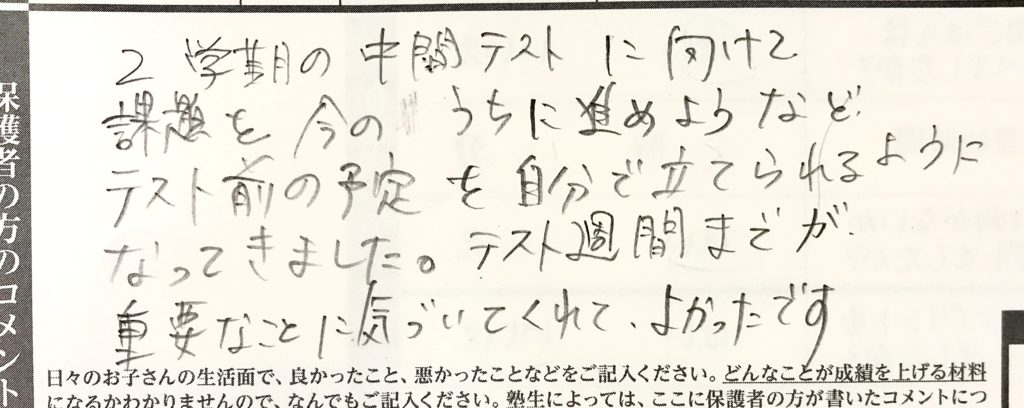 保護者の方のコメント
2学期の中間テストに向けて
課題を今のうちに進めようなど
テスト前の予定を自分で立てられるように
なってきました。テスト週間までが
重要なことに気づいてくれて、よかったです
日々のお子さんの生活面で、良かったこと、悪かったことなどをご記入ください。どんなことが成績を上げる材料
になるかわかりませんので、なんでもご記入ください。塾生によっては、ここに保護者の方が書いたコメントにつ